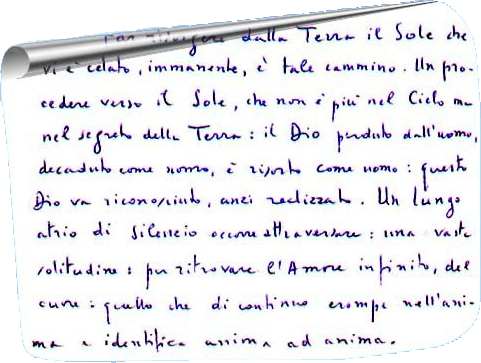 Far sorgere dalla Terra il Sole che
vi è celato, immanente, è tale cammino. Un pro-
cedere verso il Sole, che non è più nel Cielo ma
nel segreto della Terra: il Dio perduto dall'uomo,
decaduto come uomo, è risorto come uomo: questo
Dio va riconosciuto, anzi realizzato. Un lungo
atrio di silenzio occorre attraversare: una vasta
solitudine: per ritrovare l'Amore infinito, del
cuore: quello che di continuo erompe nell'ani-
ma e identifica anima ad anima.